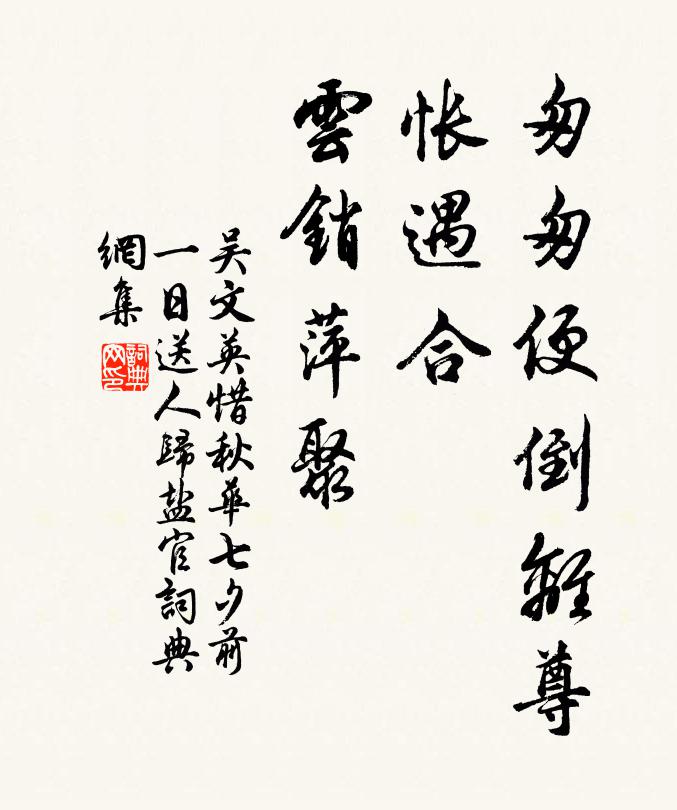 匆匆便倒離尊
悵遇合
雲銷萍聚
吴文英惜秋華七夕前
一日送人歸盐官詞典
網集
詞典
网印